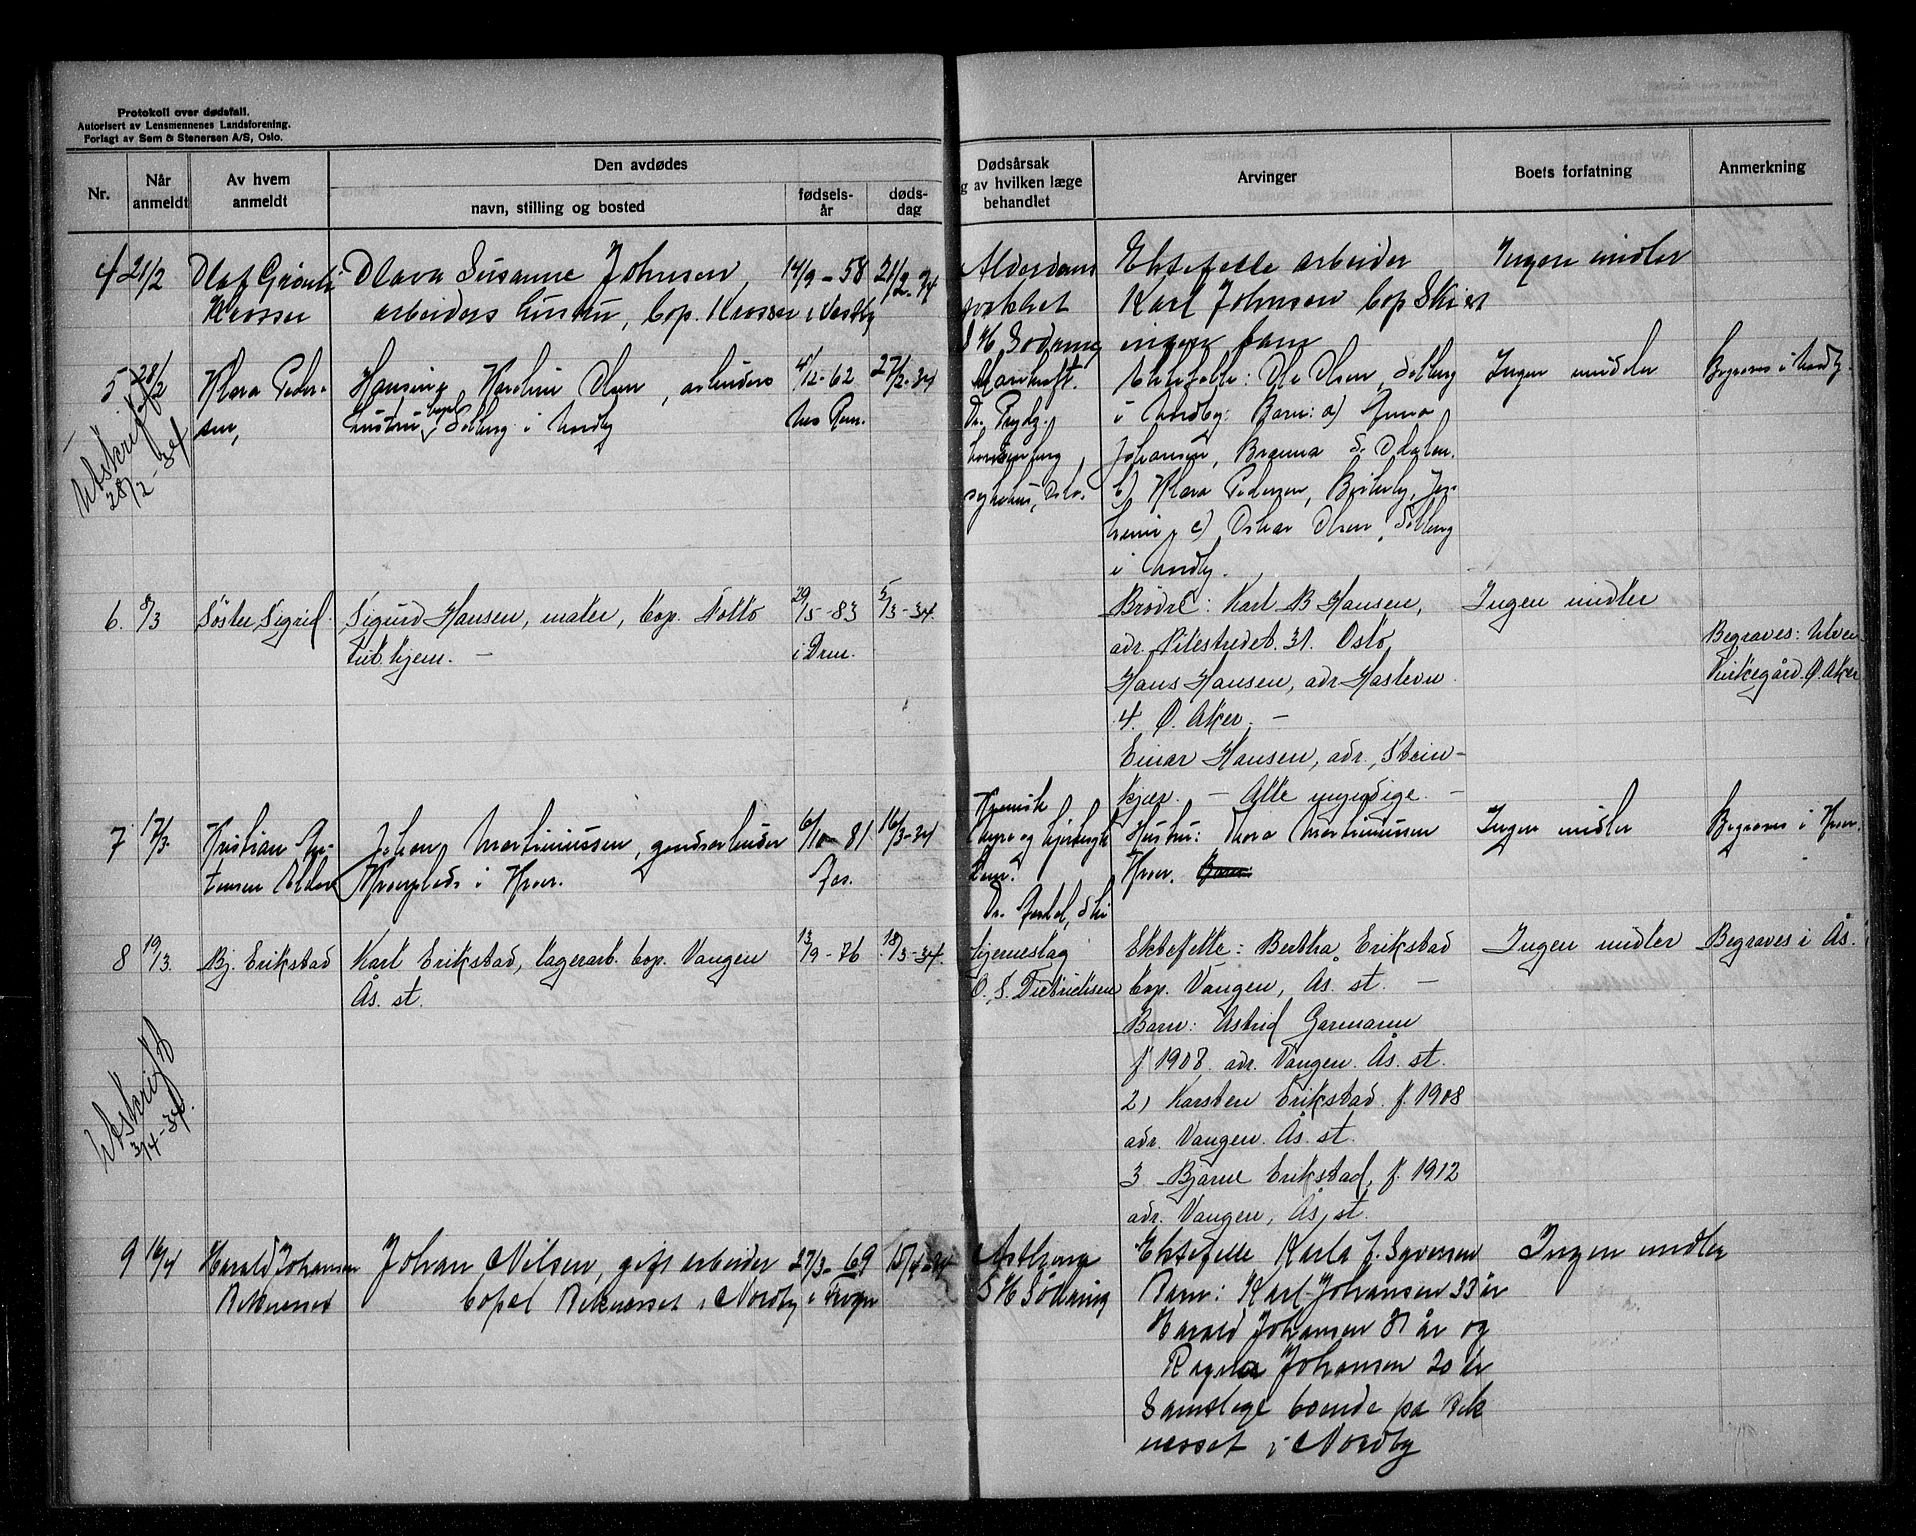 Protokoll over dødsfall.
Autorisert av Lensmennenes Landsforening.
Forlagt av Sem & Stenersen A/S, Oslo.
Nr.
Når
anmeldt
Av hvem
anmeldt
Den avdødes
navn, stilling og bosted
fødsels-
år
døds-
dag
Dødsårsak
g av hvilken læge
behandlet
Arvinger
Boets forfatning
Anmerkning
4 21/2 Olaf
Krosser
Olava Susanne Johnsen
arbeiders hustru, bop. Krosser i Vestby
14/9-58
21/2-34
S H Sødring
Ektefelle arbeider
Karl Johnsen bop Ski st
ingen barn
Ingen midler
5 28/2
Utskrift
28/2-34
Klara Peder-
sen,
Karoline Olsen, arbeiders
hustru bopl Solberg i Nordby
4/12-62
27/2-34
Marekraft.
Dr.
sykehus, Oslo.
Ektefelle: Ole Olsen, Solberg
i Nordby: Barn: a) Anna
Johansen,
b) Klara Pedersen,
c) Oskar Olsen, Solberg
i Nordby.
Ingen midler
Begraves i Nordby.
6. 8/3
Søster Sigrid
Sigurd Hansen, maler, bop. Follo
hjem. —
29/5-83
i Drm.
5/3-34.
Brødre: Karl B Hansen,
adr. Pilestredet. 31. Oslo
Hans Hansen, adr Haslevn
4. Ø. Aker. —
Einar Hansen, adr., Stein-
kjær. — Alle myndige. —
Ingen midler
Begraves: Ulven
Kirkegård. Ø. Aker
7 17/3
Kristian
Johan Martiniussen, gårdsarbeider
i Kroer.
6/10-81
Ås.
16/3-34
Kronisk
Dr.
Ski
Hustru: Thora Martiniussen
Kroer. Barn:
Ingen midler
Begraves i Kroer.
8 19/3.
Utskrift
3/4-34.
Bj. Erikstad
Karl Erikstad, lagerarb. bop. Vangen
Ås. st.
13/9-76
18/3-34.
hjerneslag
O. S. Dietrichsen
Ektefelle: Bertha Erikstad
bop. Vangen, Ås. st. —
Barn: Astrid Garmann
f 1908. adr. Vangen. Ås. st.
2) Karsten Erikstad. f. 1908
adr. Vangen. Ås. st.
3 Bjarne Erikstad, f. 1912
adr. Vangen, Ås, st.
Ingen midler
Begraves i Ås.
9 16/4
Harald Johansen
Beknesset
Johan Nilsen, gift arbeider
bopel Beknesset i Nordby
27/3-69
i Frogn
15/4-34
S H Sødring
Ektefelle Karla J. Syversen
Barn: Karl Johansen 33 år
Harald Johansen 31 år og
Ragna Johansen 20 år
Samtlige boende på Bek
nesset i Nordby
Ingen midler